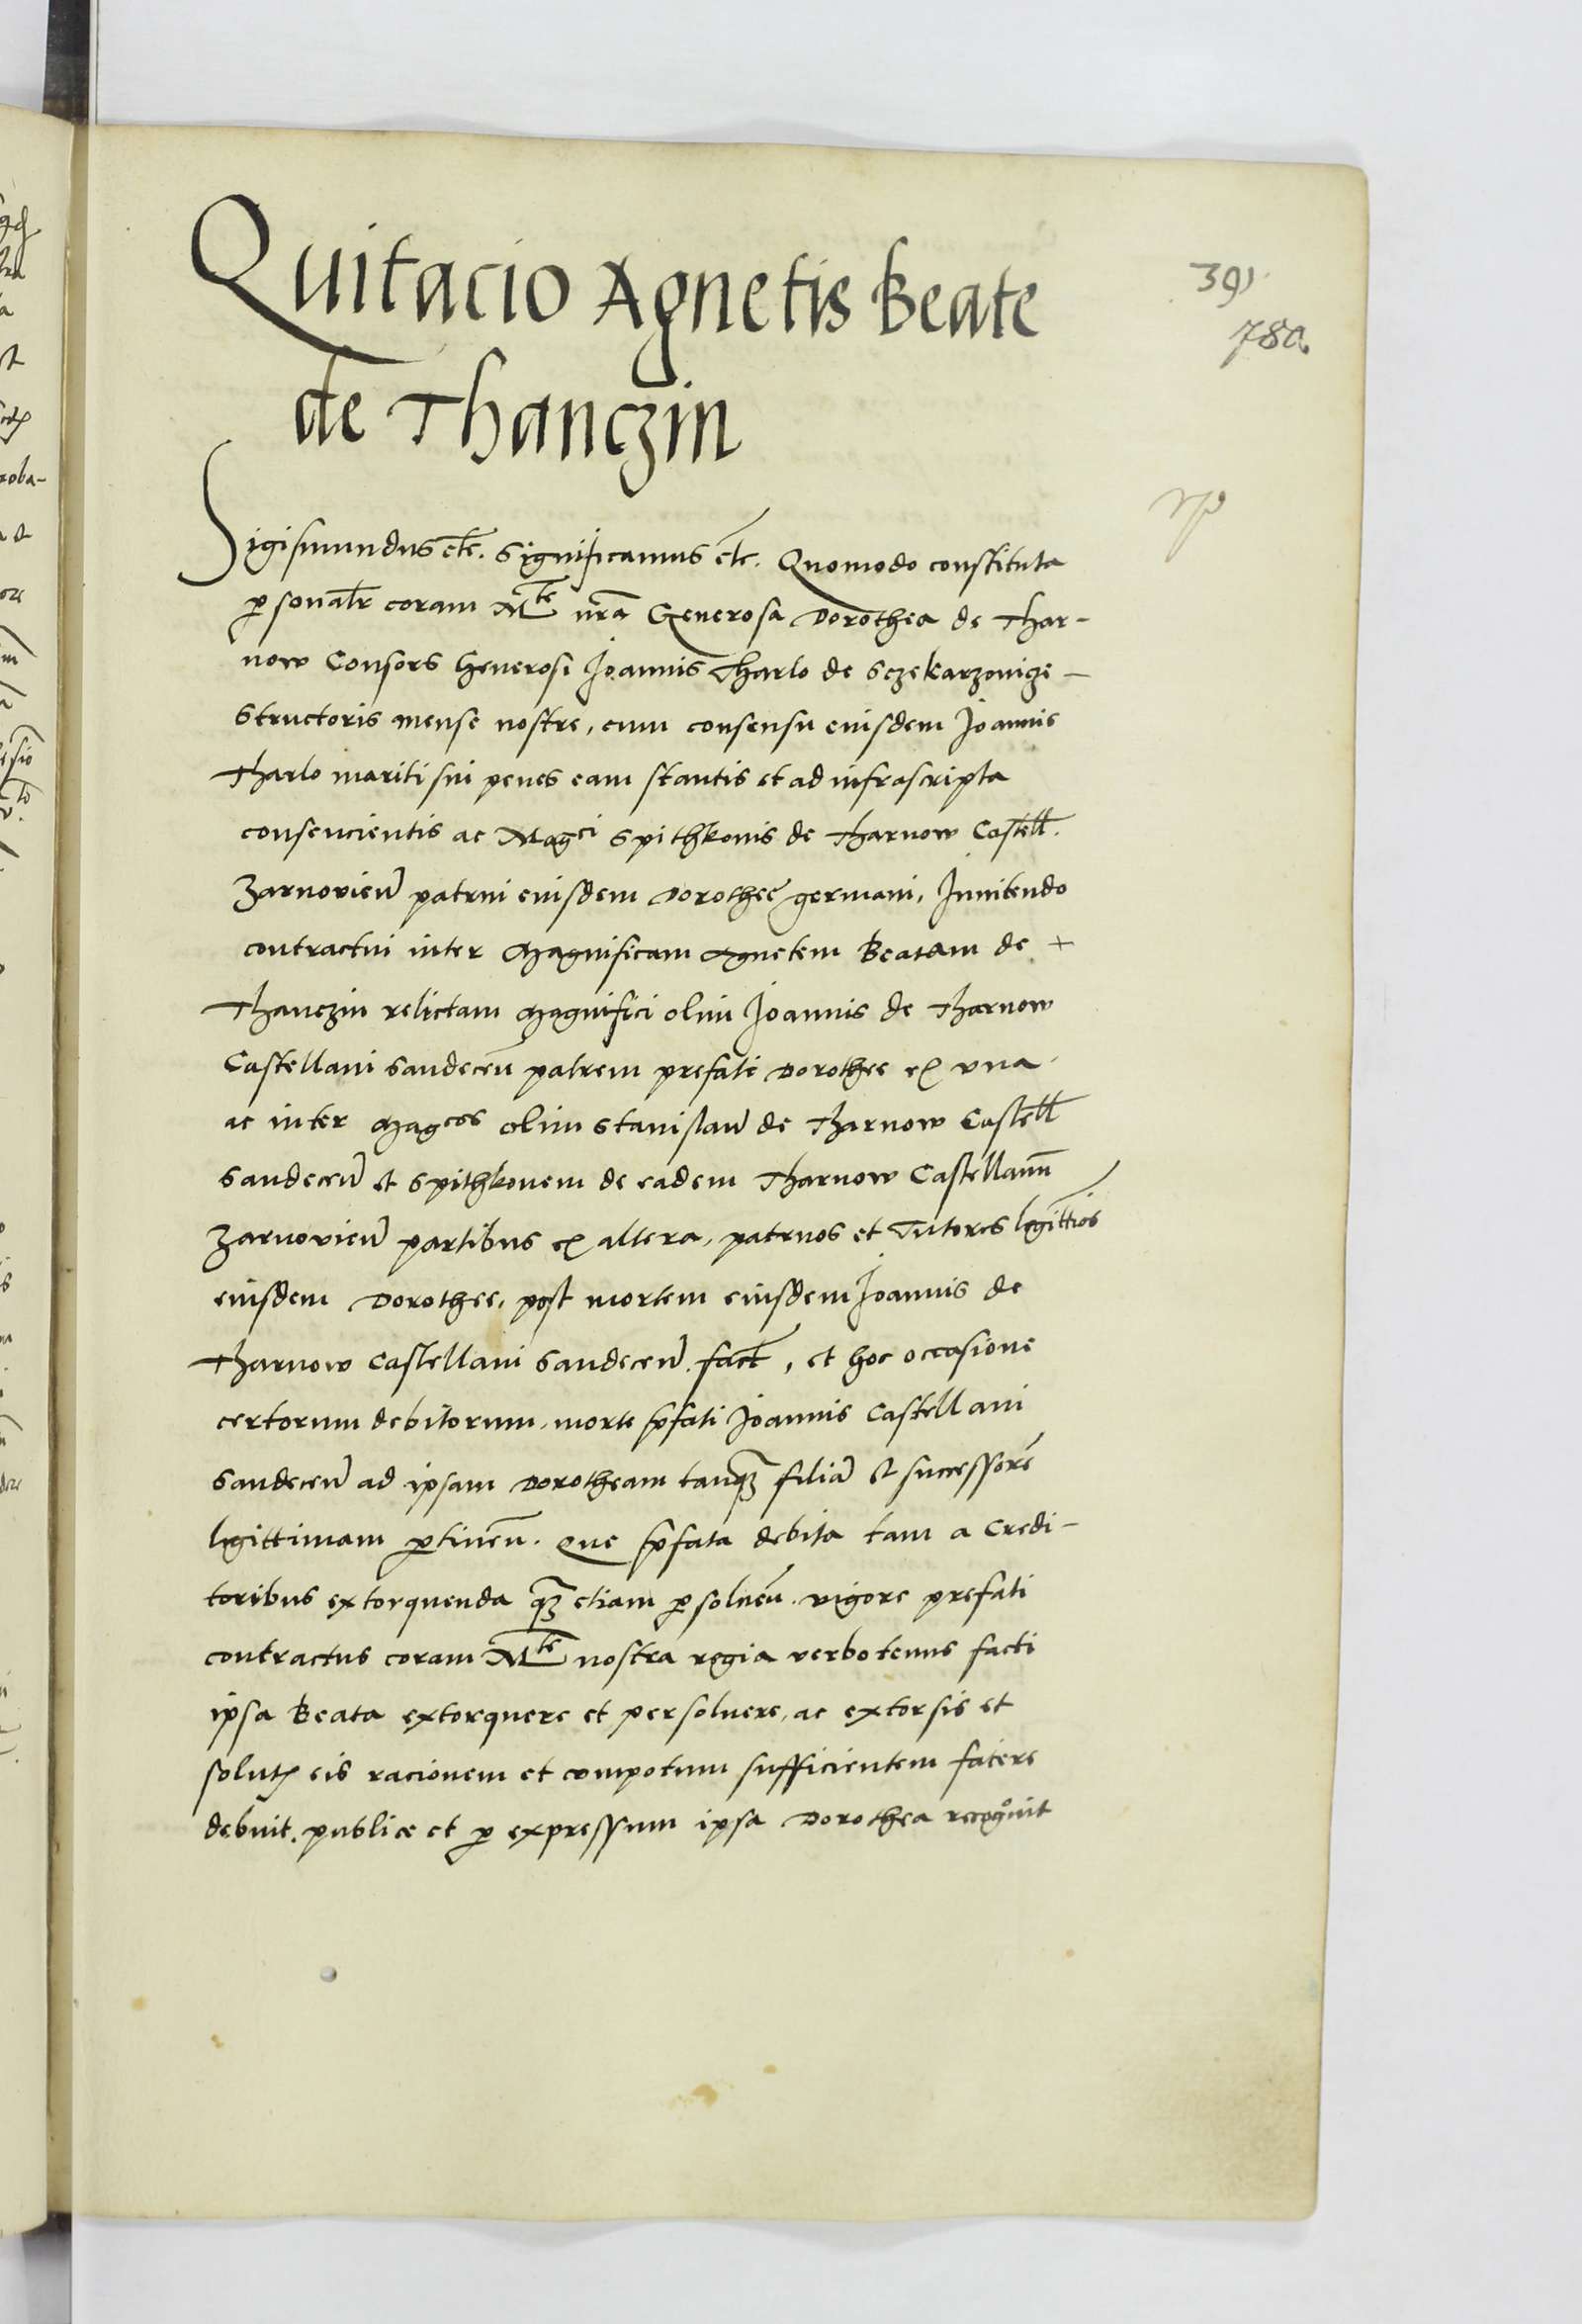 Quitacio Agnetis Beate
391
780
de Thanczin
Sigismundus etc. Significamus etc. Quomodo constituta
psonalr coram Mte nra Generosa Dorothea de Thar-
now Consors Generosi Joannis Tharlo de Sczekarzovicze
Structoris mense nostre, cum consensu eiusdem Joannis
Tharlo mariti sui penes eam stantis et ad infrascripta
consencientis ac Magci Spithkonis de Tharnow Castell.
Zarnovien patrui eiusdem Dorothee germani, Innitendo
contractui inter Magnificam Agnetem Beatam de +
Thanczin relictam Magnifici olim Joannis de Tharnow
Castellani Sandecen patrem prefate Dorothee ex una
ac inter Magcos olim Stanislau de Tharnow Castell
Sandecen et Spithkonem de eadem Tharnow Castellanu
Zarnovien partibus ex altera, patruos et Tutores legittios
eiusdem Dorothee, post mortem eiusdem Joannis de
Tharnow Castellani Sandecen. fact, et hoc occasione
certorum debitorum, morte pfati Joannis Castellani
Sandecen ad ipsam Dorotheam tanq filia et successore
legittimam ptinen. Que pfata debita tam a Credi-
toribus extorquenda q etiam psoluen. vigore prefati
contractus coram Mte nostra regia verbotenus facti
ipsa Beata extorquere et persoluere, ac extorsis et
solut eis racionem et compotum sufficientem facere
debuit. publice et p expressum ipsa Dorothea recognouit